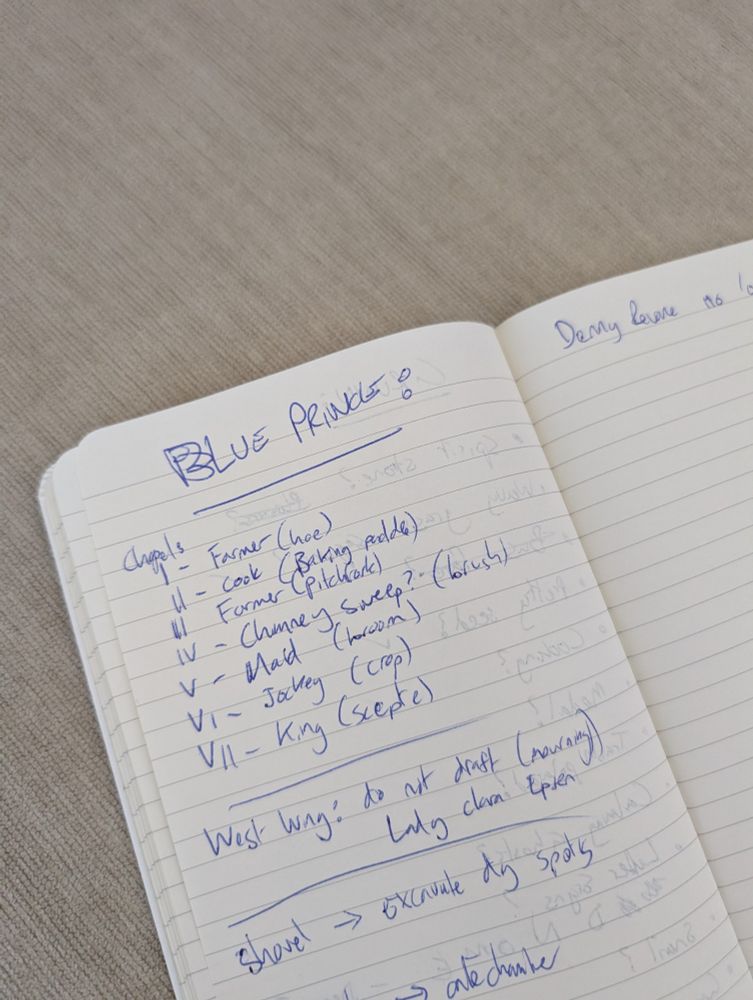 BLUE PRINCE:
Chapels
I - Farmer (hoe)
II - Cook (Baking paddle)
III Farmer (Pitchfork)
IV - Chimney Sweep? - (brush)
V - Maid (broom)
VI - Jockey (crop)
VII - King (scepte)
West Wing: do not draft (mourning)
Lady clara Epsen
shovel → excavate dig spots
→ antechamber
Denny no